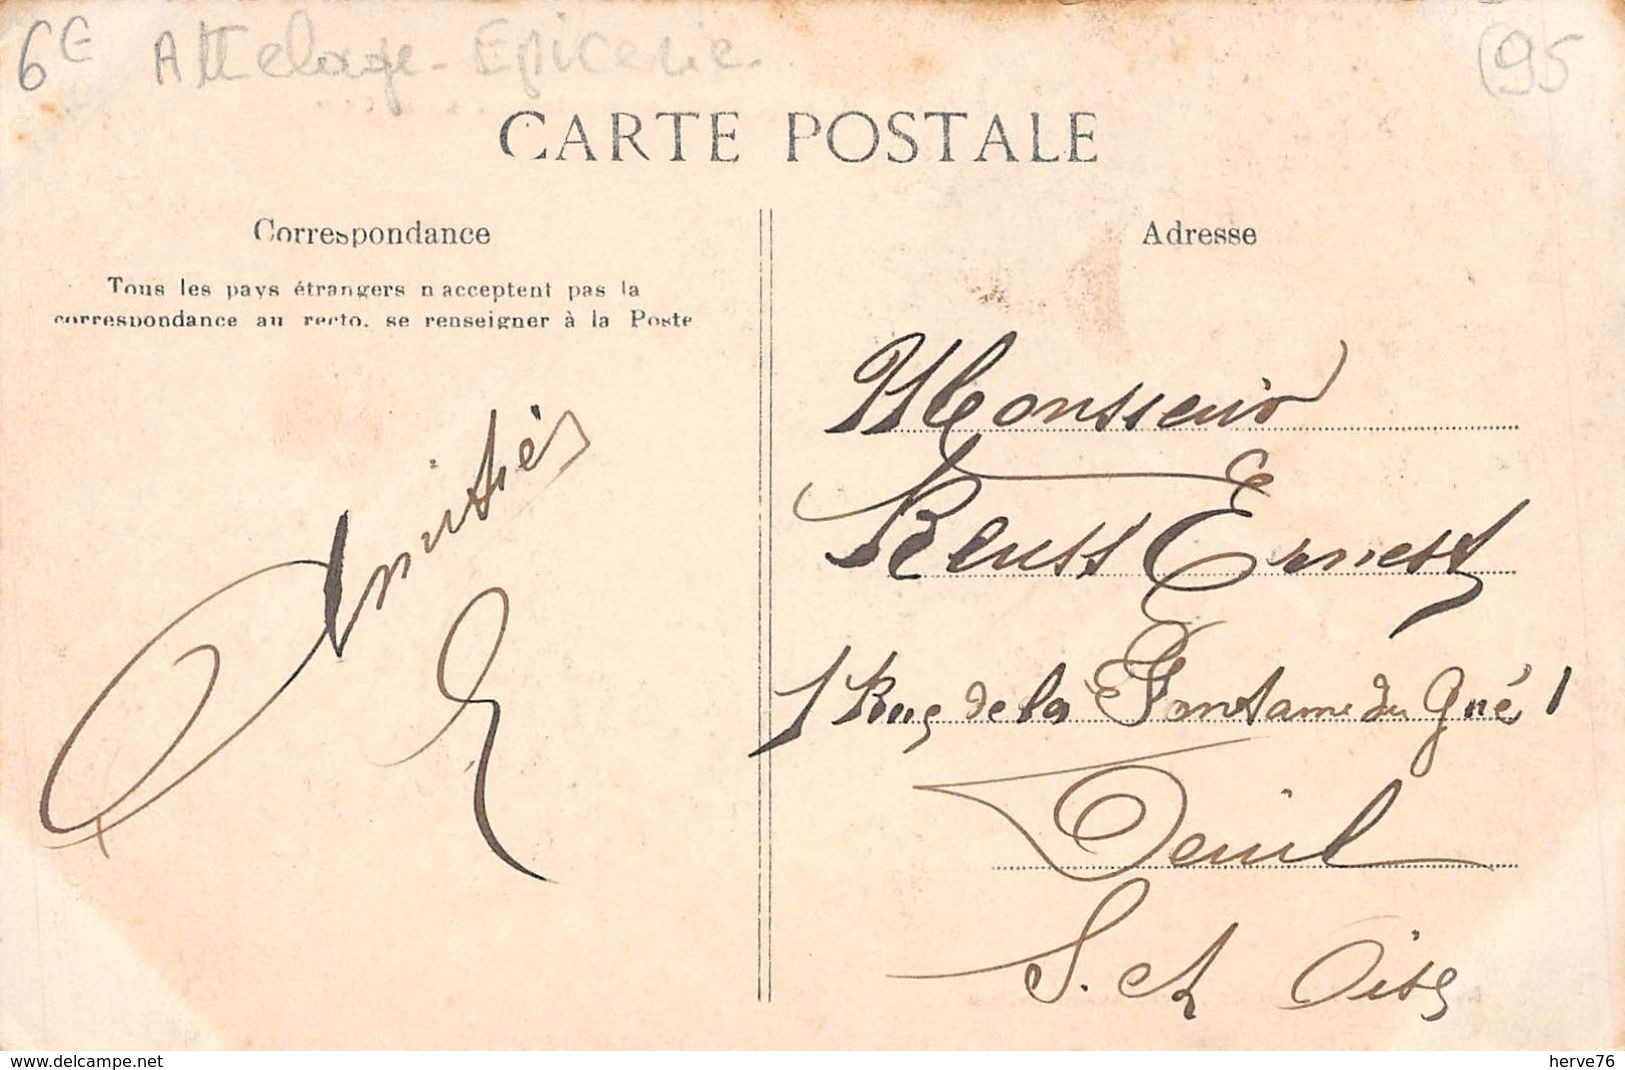 6€ Attelage - Epicerie - (95
CARTE POSTALE
Correspondance
Tous les pays étrangers n'acceptent pas la
correspondance au recto, se renseigner à la Poste
Amitiés
E
Adresse
Monsieur
Reuss Ernest
1 Rue de la Fontaine du Gué 1
Deuil
S. et Oise
www.delcampe.net
herve76